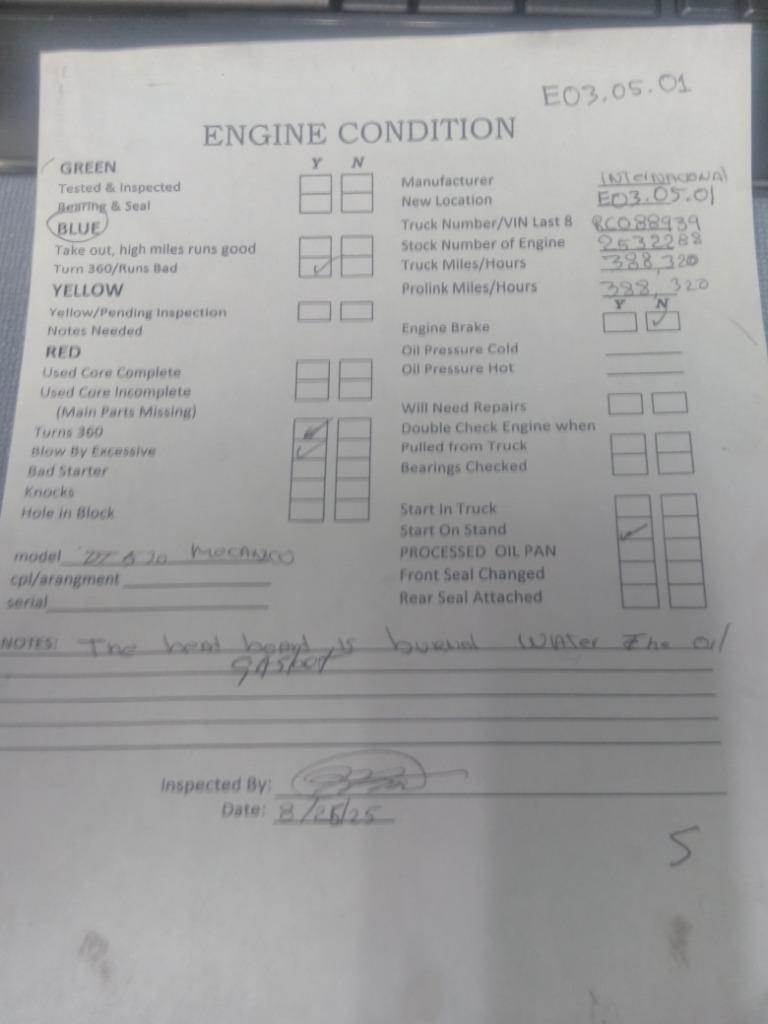 E03.05.01
ENGINE CONDITION
Y N
GREEN
Tested & Inspected
Bearing & Seal
BLUE
Take out, high miles runs good
Turn 360/Runs Bad
YELLOW
Yellow/Pending Inspection
Notes Needed
RED
Used Core Complete
Used Core Incomplete
(Main Parts Missing)
Turns 360
Blow By Excessive
Bad Starter
Knocks
Hole in Block
model MECANICO
cpl/arangment
serial
Manufacturer INTERNACIONAL
New Location E03.05.01
Truck Number/VIN Last 8 8C088939
Stock Number of Engine 2532288
Truck Miles/Hours 388,320
Prolink Miles/Hours 388,320
Y N
Engine Brake
Oil Pressure Cold
Oil Pressure Hot
Will Need Repairs
Double Check Engine when
Pulled from Truck
Bearings Checked
Start In Truck
Start On Stand
PROCESSED OIL PAN
Front Seal Changed
Rear Seal Attached
NOTES: The head is Water The oil
gasket
Inspected By:
Date: 8/25/25
S